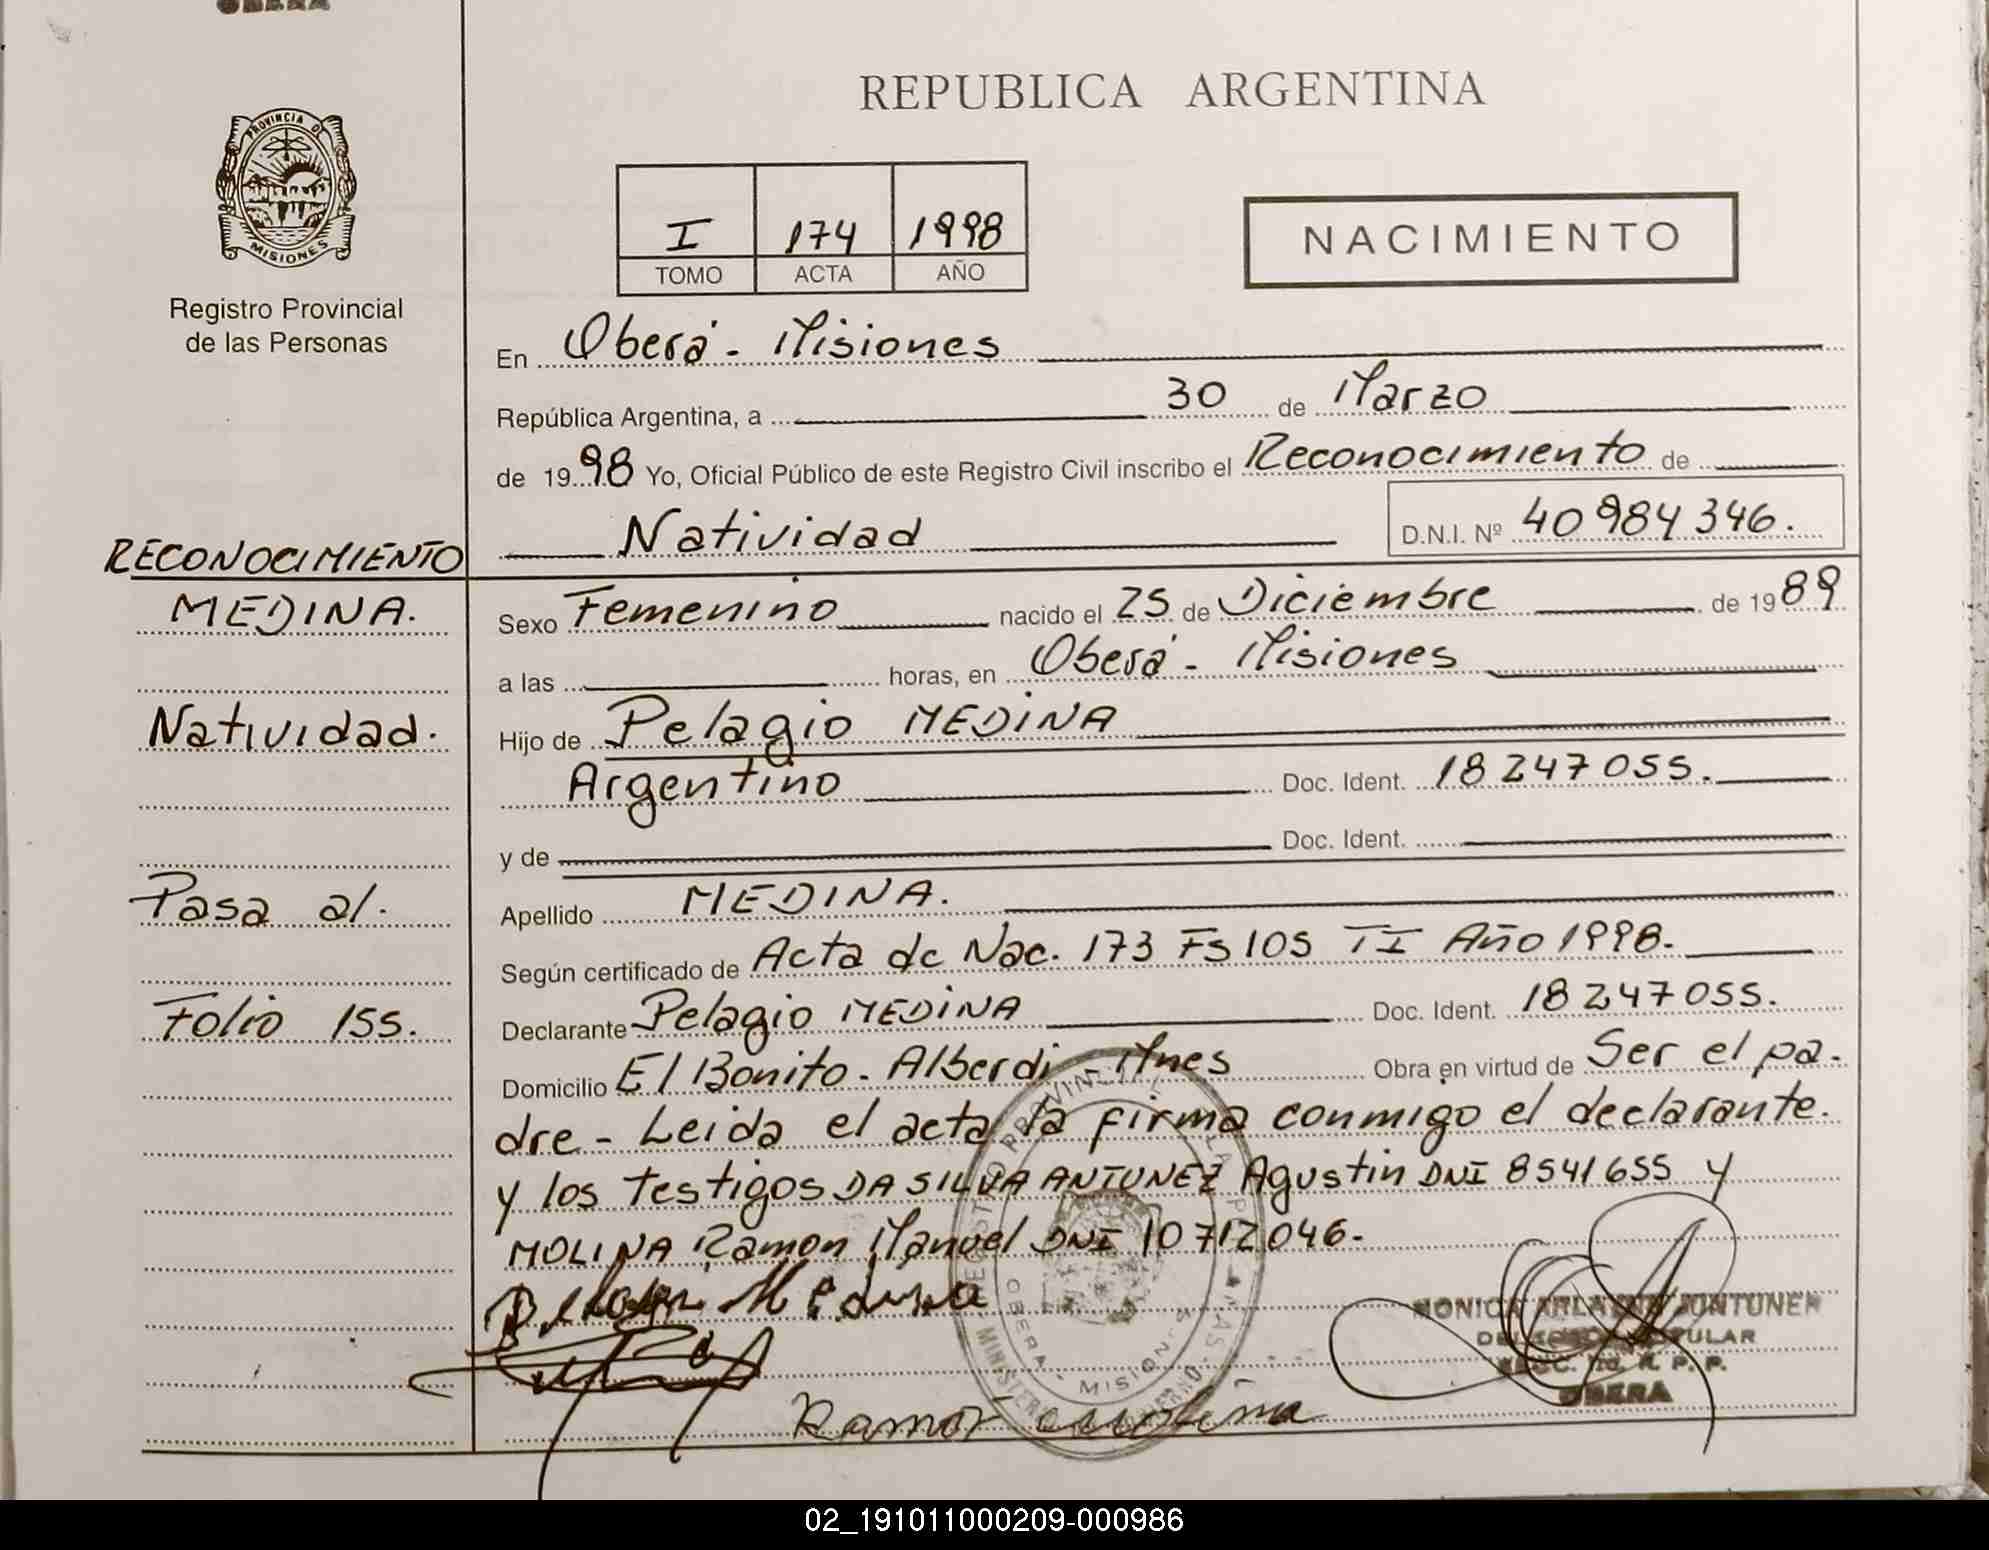 OBERA
PROVINCIA DE
MISIONES
Registro Provincial
de las Personas
REPUBLICA ARGENTINA
I 174 1998
TOMO ACTA AÑO
NACIMIENTO
En Oberá - Misiones
República Argentina, a 30 de Marzo
de 1998 Yo, Oficial Público de este Registro Civil inscribo el Reconocimiento de
Natividad D.N.I. Nº 40984346.
RECONOCIMIENTO
MEDINA.
Natividad.
Pasa al.
Folio 155.
Sexo Femenino nacido el 25 de Diciembre de 1989
a las horas, en Oberá - Misiones
Hijo de Pelagio MEDINA
Argentino Doc. Ident. 18247055.
y de Doc. Ident.
Apellido MEDINA.
Según certificado de Acta de Nac. 173 Fs 105 TI Año 1998.
Declarante Pelagio MEDINA Doc. Ident. 18247055.
Domicilio El Bonito - Alberdi - Mnes Obra en virtud de Ser el pa-
dre - Leida el acta la firma conmigo el declarante.
y los testigos DA SILVA ANTUNEZ Agustin DNI 8541655 y
MOLINA Ramon Manuel DNI 10712046-
Medina
OBERA - MISIONES
OBERA
02_191011000209-000986